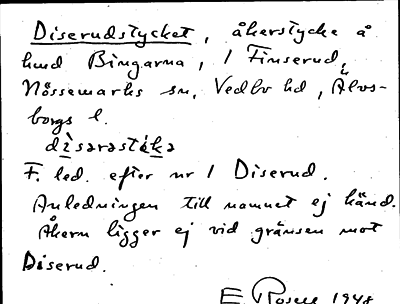 Diserudstycket, åkerstycke å
hmd Bingarna, 1 Finserud,
Nössemarks sn, Vedbo hd, Älvs-
borgs l.
dìsərəstəkə
F. led. efter nr 1 Diserud.
Anledningen till namnet ej känd.
Åkern ligger ej vid gränsen mot
Diserud.
E. Rosell 1948